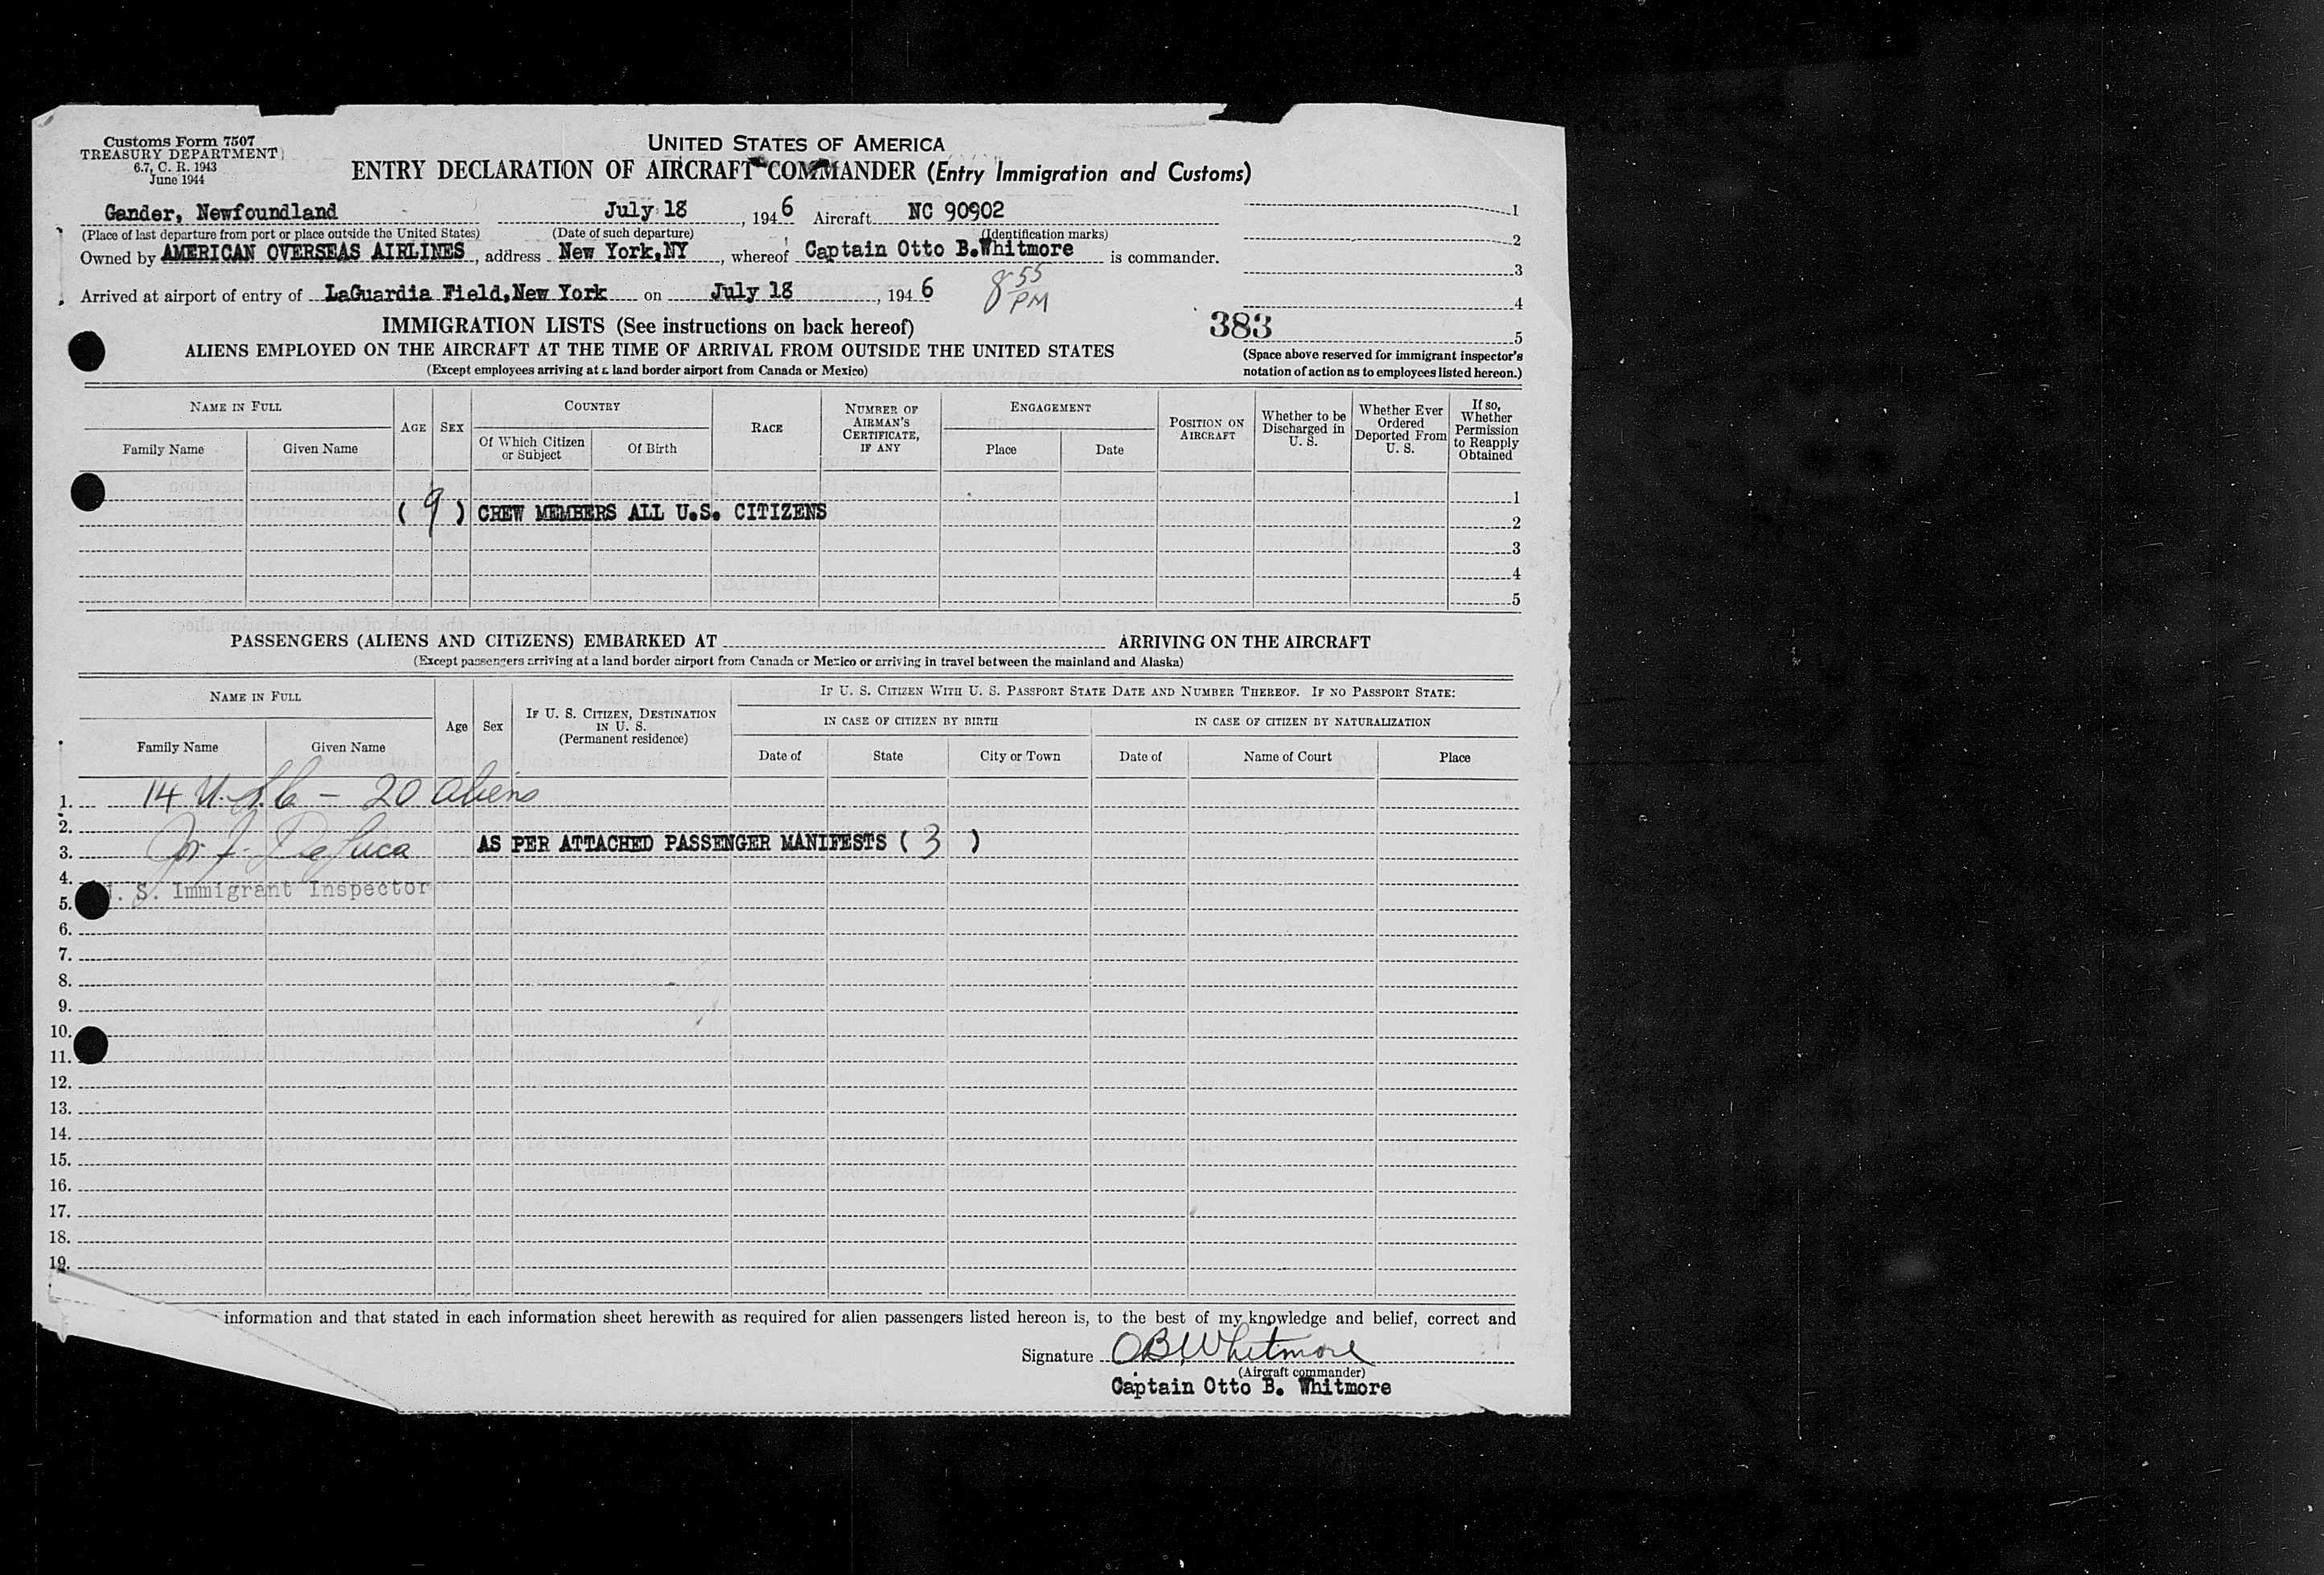 Customs Form 7507
TREASURY DEPARTMENT
6.7, C. R. 1943
June 1944
UNITED STATES OF AMERICA
ENTRY DECLARATION OF AIRCRAFT COMMANDER (Entry Immigration and Customs)
Gander, Newfoundland July 18, 1946 Aircraft NC 90902
(Place of last departure from port or place outside the United States) (Date of such departure) (Identification marks)
Owned by AMERICAN OVERSEAS AIRLINES, address New York,NY, whereof Captain Otto B.Whitmore is commander.
Arrived at airport of entry of LaGuardia Field,New York on July 18, 1946 8 55 PM
1
2
3
4
383 5
(Space above reserved for immigrant inspector's
notation of action as to employees listed hereon.)
IMMIGRATION LISTS (See instructions on back hereof)
ALIENS EMPLOYED ON THE AIRCRAFT AT THE TIME OF ARRIVAL FROM OUTSIDE THE UNITED STATES
(Except employees arriving at a land border airport from Canada or Mexico)
NAME IN FULL
Family Name Given Name
AGE SEX
COUNTRY
Of Which Citizen or Subject Of Birth
RACE
NUMBER OF AIRMAN'S CERTIFICATE, IF ANY
ENGAGEMENT
Place Date
POSITION ON AIRCRAFT
Whether to be Discharged in U. S.
Whether Ever Ordered Deported From U. S.
If so, Whether Permission to Reapply Obtained
1
( 9 ) CREW MEMBERS ALL U.S. CITIZENS 2
3
4
5
PASSENGERS (ALIENS AND CITIZENS) EMBARKED AT ARRIVING ON THE AIRCRAFT
(Except passengers arriving at a land border airport from Canada or Mexico or arriving in travel between the mainland and Alaska)
NAME IN FULL
Family Name Given Name
Age Sex
IF U. S. CITIZEN, DESTINATION IN U. S. (Permanent residence)
IF U. S. CITIZEN WITH U. S. PASSPORT STATE DATE AND NUMBER THEREOF. IF NO PASSPORT STATE:
IN CASE OF CITIZEN BY BIRTH IN CASE OF CITIZEN BY NATURALIZATION
Date of State City or Town Date of Name of Court Place
1. 14 U.S.C - 20 aliens
2.
3. De Luca AS PER ATTACHED PASSENGER MANIFESTS ( 3 )
4.
S. Immigrant Inspector
5.
6.
7.
8.
9.
10.
11.
12.
13.
14.
15.
16.
17.
18.
19.
information and that stated in each information sheet herewith as required for alien passengers listed hereon is, to the best of my knowledge and belief, correct and
Signature OB Whitmore
(Aircraft commander)
Captain Otto B. Whitmore